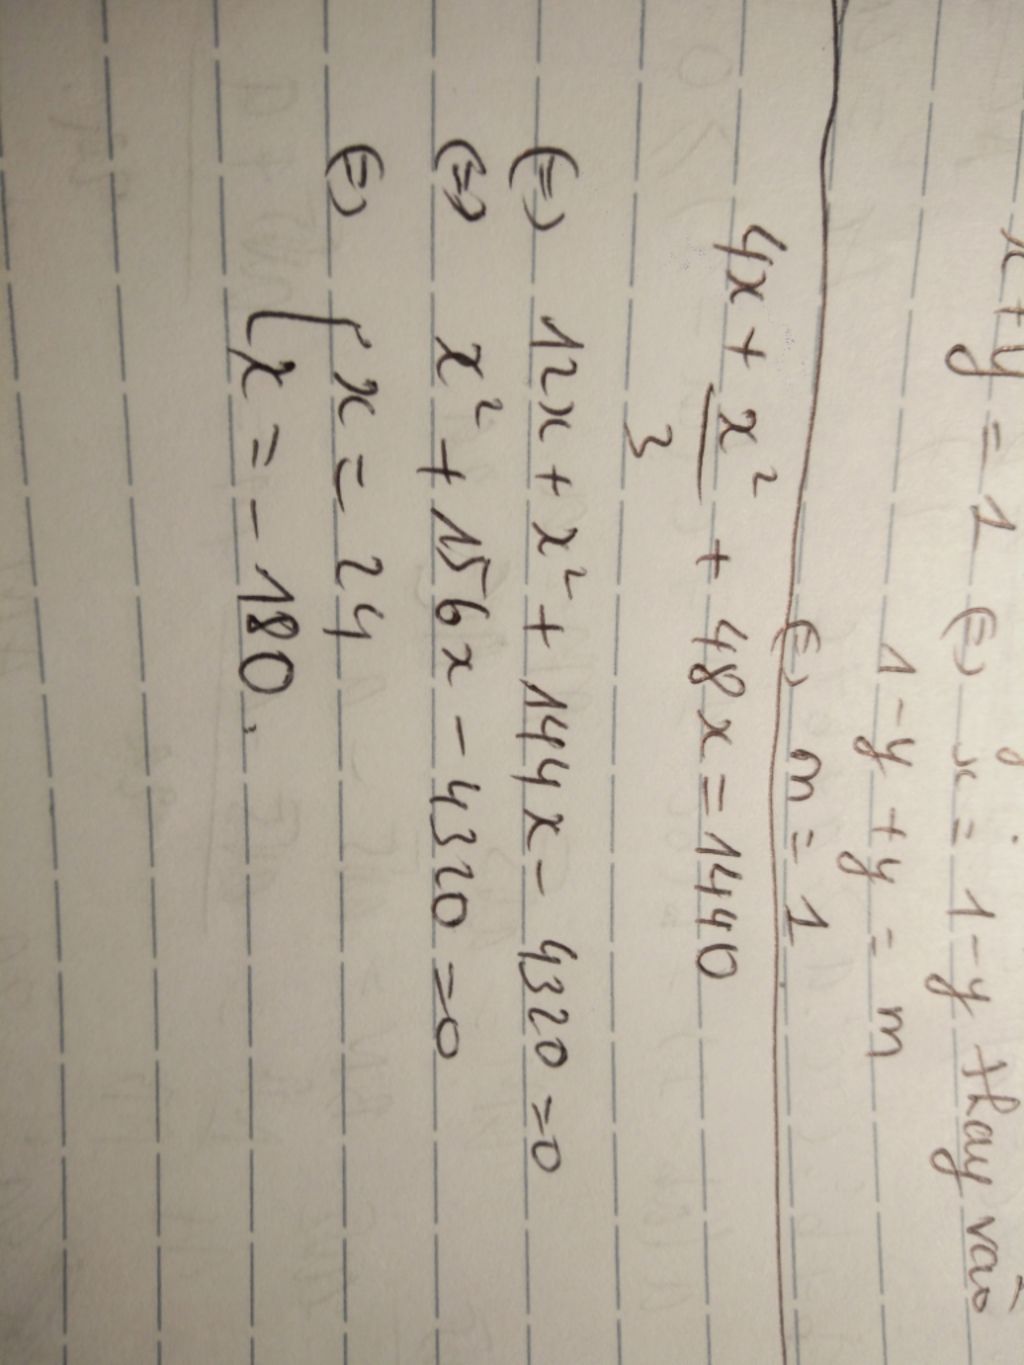 x+y = 1 (=) x = 1-y thay vào
1-y+y = m
(=) m = 1
4x + x²/3 + 48x = 1440
(=) 12x + x² + 144x - 4320 = 0
(=) x² + 156x - 4320 = 0
(=) [ x = 24
x = -180.